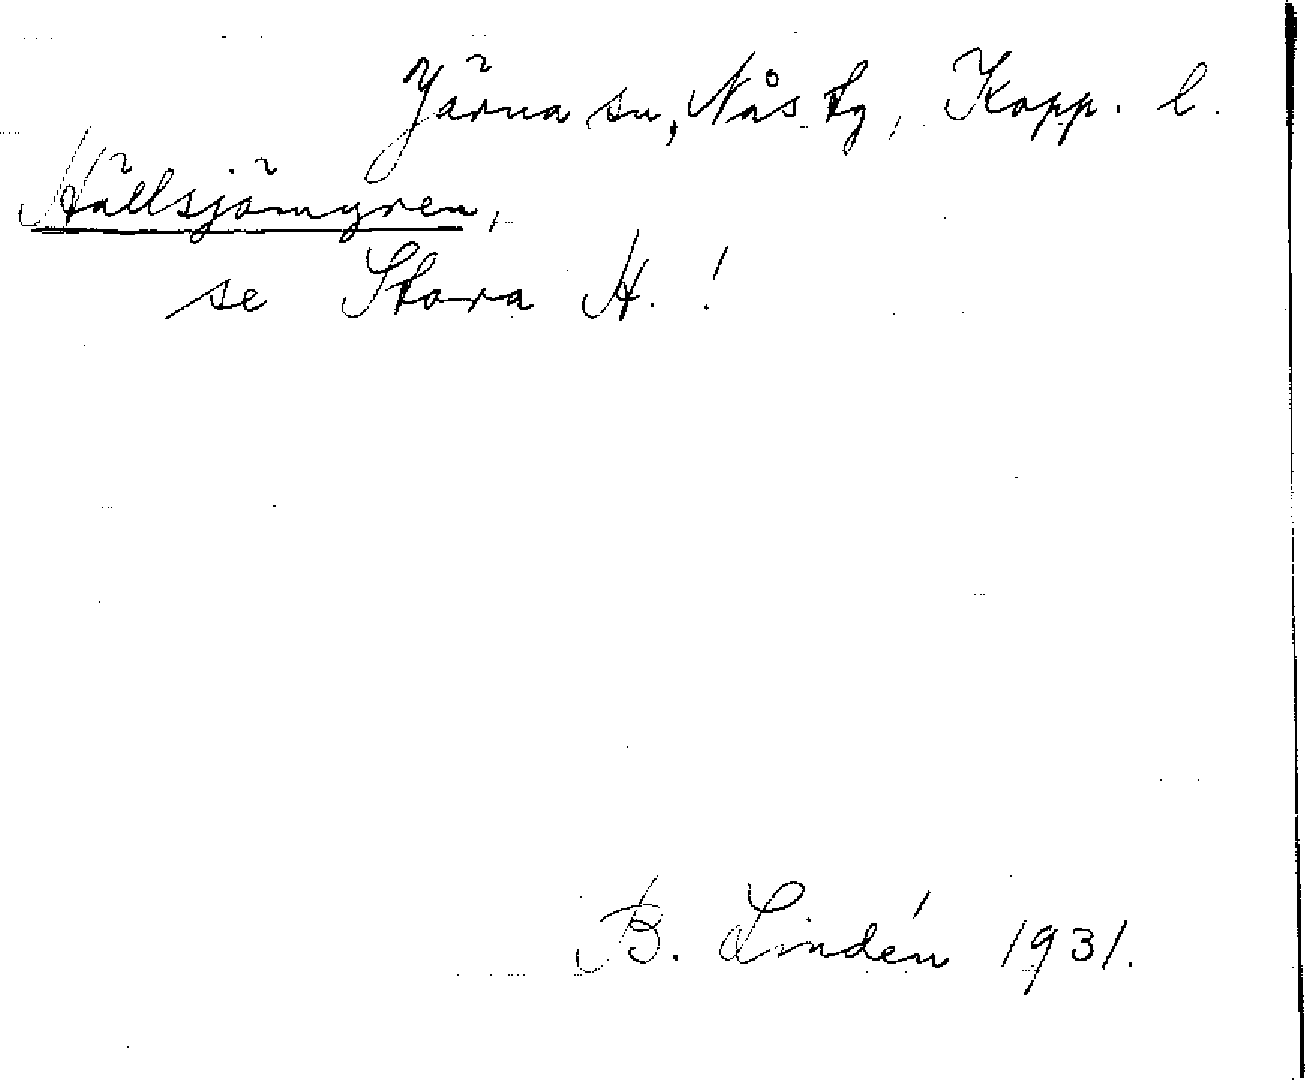 Järna sn, Nås tg, Kopp. l.
Hällsjömyren,
se Stora H. !
B. Lindén 1931.